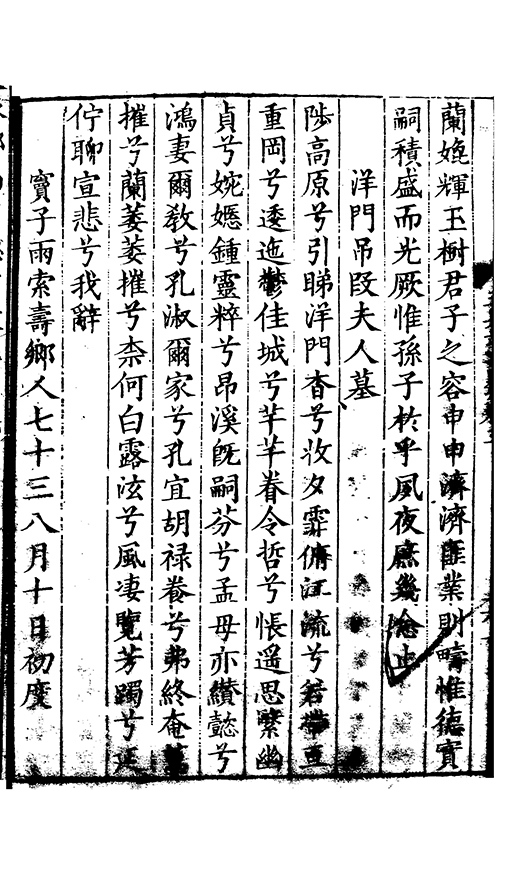 蘭媲輝玉樹君子之容申申濟濟匪業則疇惟德實
嗣積盛而光厥惟孫子於乎夙夜庶幾念止
洋門吊段夫人墓
陟高原兮引睇洋門杳兮收夕霏俯江流兮若帶亘
重岡兮逶迤鬱佳城兮芊芊眷令哲兮悵遥思繄幽
貞兮婉嫕鍾靈粹兮昂溪旣嗣芬兮孟母亦纘懿兮
鴻妻爾敎兮孔淑爾家兮孔宜胡禄養兮弗終奄
摧兮蘭萎萎摧兮柰何白露泫兮風凄覽芳躅兮延
佇聊宣悲兮我辭
竇子雨索壽鄉人七十三八月十日初度